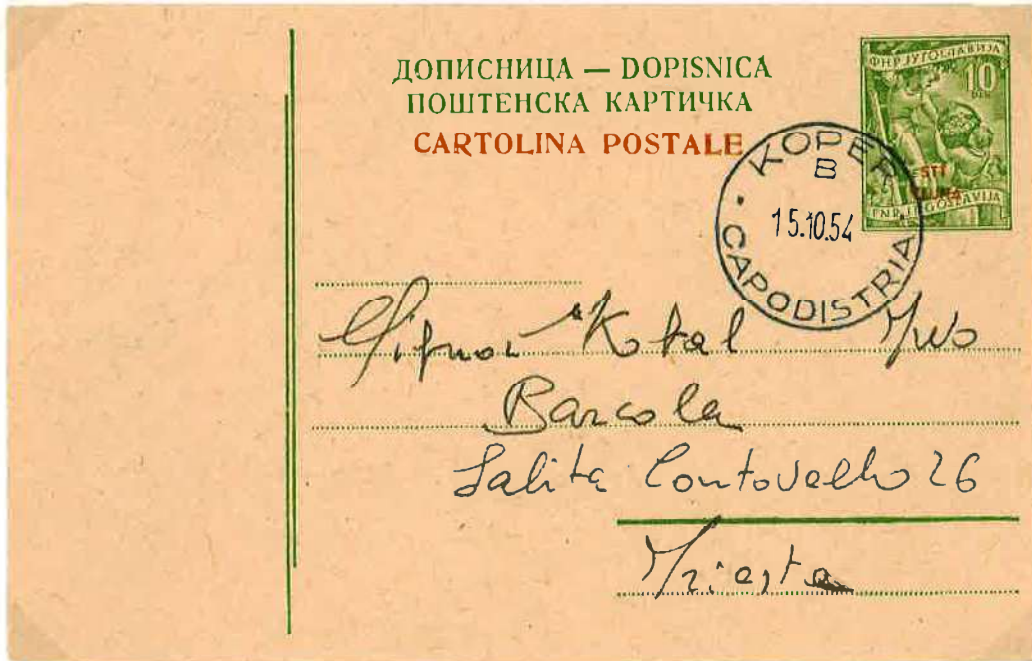 ДОПИСНИЦА — DOPISNICA
ПОШТЕНСКА КАРТИЧКА
CARTOLINA POSTALE
ФНР ЈУГОСЛАВИЈА
10
DIN
STT
VUJNA
FNR JUGOSLAVIJA
KOPER
B
15.10.54
CAPODISTRIA
Signor Kokal Ivo
Barcola
Salita Contovello 26
Trieste